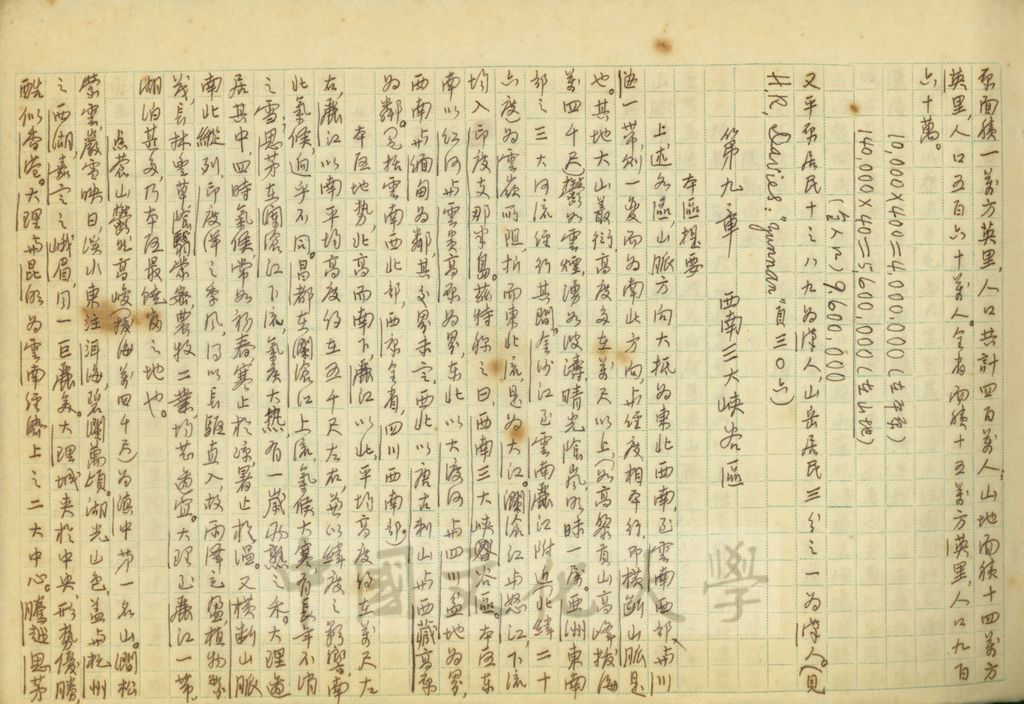 原面積一萬方英里，人口共計四百萬人；山地面積十四萬方
英里，人口五百六十萬人。全省面積十五萬方英里，人口九百
六十萬。
10,000×400=4,000,000（在平原）
140,000×40=5,600,000（在山地）
（全人口）9,600,000
又平原居民十之八九為漢人，山岳居民三分之一為漢人。（見
H.R. Davies: "Yunnan" 頁三〇六）
第九章 西南三大峽谷區
本區提要
上述各區山脈方向大抵為東北西南，至雲南西部與川
邊一帶，則一變而為南北方向，與經度相平行，即橫斷山脈是
也。其地大山叢衍，高度多在萬尺以上，如高黎貢山高峰拔海
萬四千尺，鬱如雲煙，湧如波濤，晴光陰嵐，明昧一傷。亞洲東南
部之三大河流經行其間。金沙江至雲南麗江附近北緯二十
六度為雲嶺所阻，折而東北流，是為大江。瀾滄江與怒江，下流
均入印度支那半島。茲特稱之曰，西南三大峽谷區。本區東
南以紅河與雲貴高原為界，東北以大渡河與四川盆地為界，
西南與緬甸為鄰，其交界未定，西北以唐古剌山與西藏高原
為鄰。包括雲南西北部，西康全省，四川西南部。
本區地勢，北高而南下，麗江以北，平均高度約在萬尺左
右，麗江以南平均高度約在五千尺左右，兼以緯度之影響，南
北氣候，迥乎不同。昌都在瀾滄江上流，氣候大寒，有長年不消
之雪；思茅在瀾滄江下流，氣候大熱，有一歲兩熟之禾。大理適
居其中，四時氣候，常如初春，寒止於涼，暑止於溫。又橫斷山脈
南北縱列，印度洋之季風，得以長驅直入，故雨澤充盈，植物繁
茂，長林豐草，陰翳紫蘇，農牧二業，均甚適宜。大理至麗江一帶，
湖泊甚多，乃本區最饒富之地也。
點蒼山鬱然高峻，拔海萬四千尺，為滇中第一名山。澗松
縈雲，巖雪映日，溪水東注洱海，碧瀾萬頃。湖光山色，蓋與杭州
之西湖，嘉定之峨眉，同一巨麗矣。大理城夾於中央，形勢優勝，
酷似香港。大理與昆明為雲南經濟上之二大中心。騰越思茅
中國文化大學